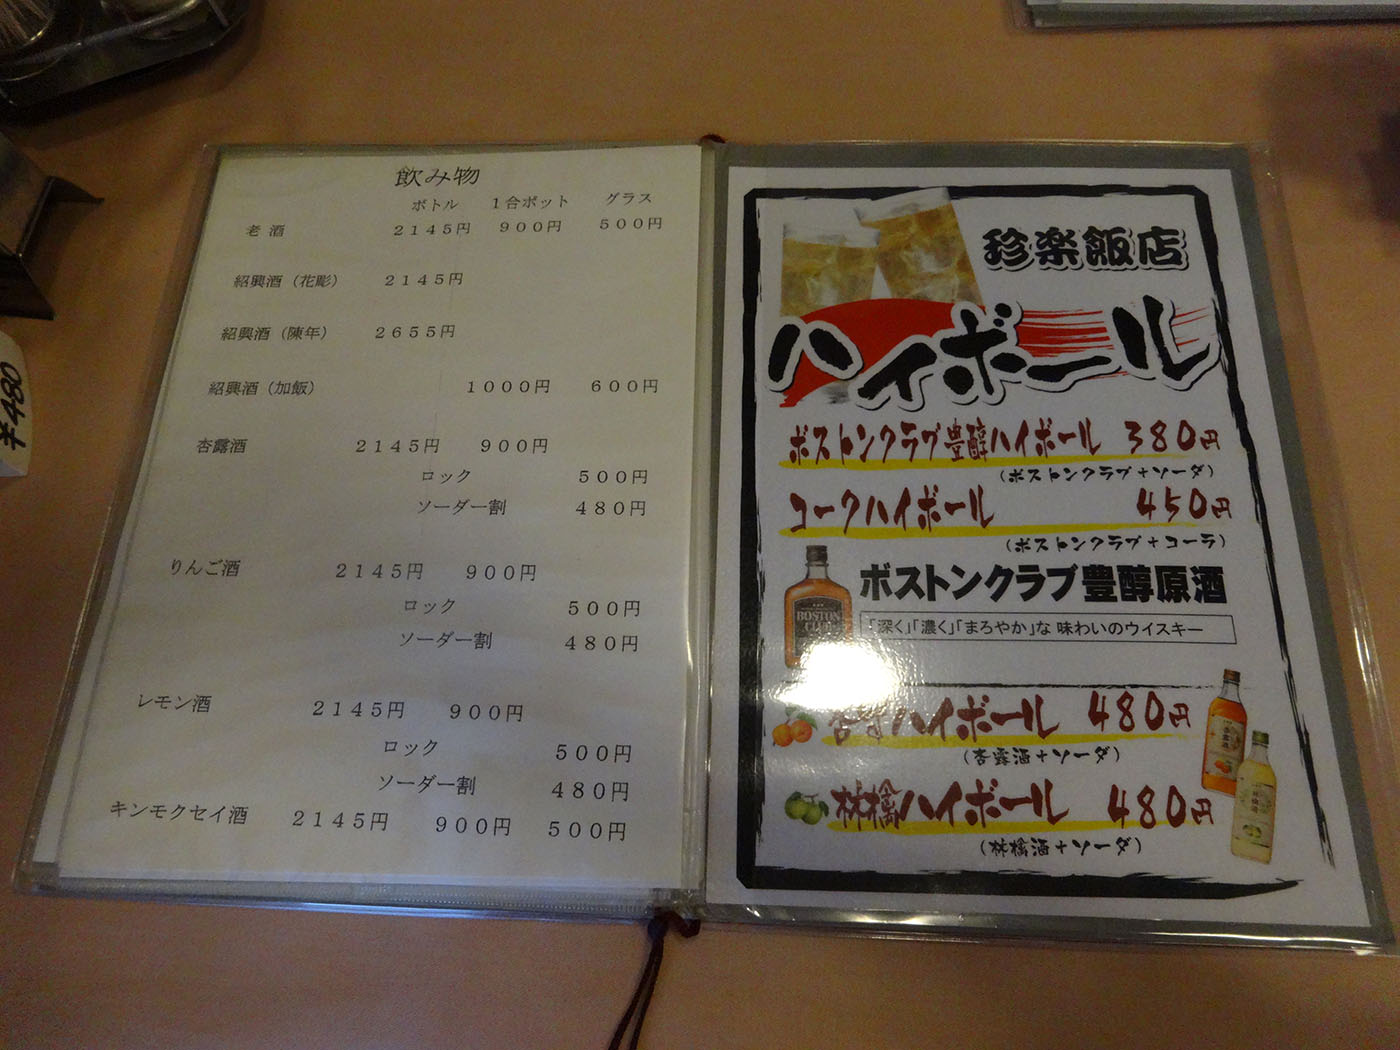 飲み物
ボトル １合ポット グラス
老 酒 ２１４５円 ９００円 ５００円
紹興酒（花彫） ２１４５円
紹興酒（陳年） ２６５５円
紹興酒（加飯） １０００円 ６００円
杏露酒 ２１４５円 ９００円
ロック ５００円
ソーダー割 ４８０円
りんご酒 ２１４５円 ９００円
ロック ５００円
ソーダー割 ４８０円
レモン酒 ２１４５円 ９００円
ロック ５００円
ソーダー割 ４８０円
キンモクセイ酒 ２１４５円 ９００円 ５００円
珍楽飯店
ハイボール
ボストンクラブ豊醇ハイボール 380円
(ボストンクラブ+ソーダ)
コークハイボール 450円
(ボストンクラブ+コーラ)
BOSTON
CLUB
ボストンクラブ豊醇原酒
「深く」「濃く」「まろやか」な 味わいのウイスキー
杏露ハイボール 480円
(杏露酒+ソーダ)
林檎ハイボール 480円
(林檎酒+ソーダ)
¥480